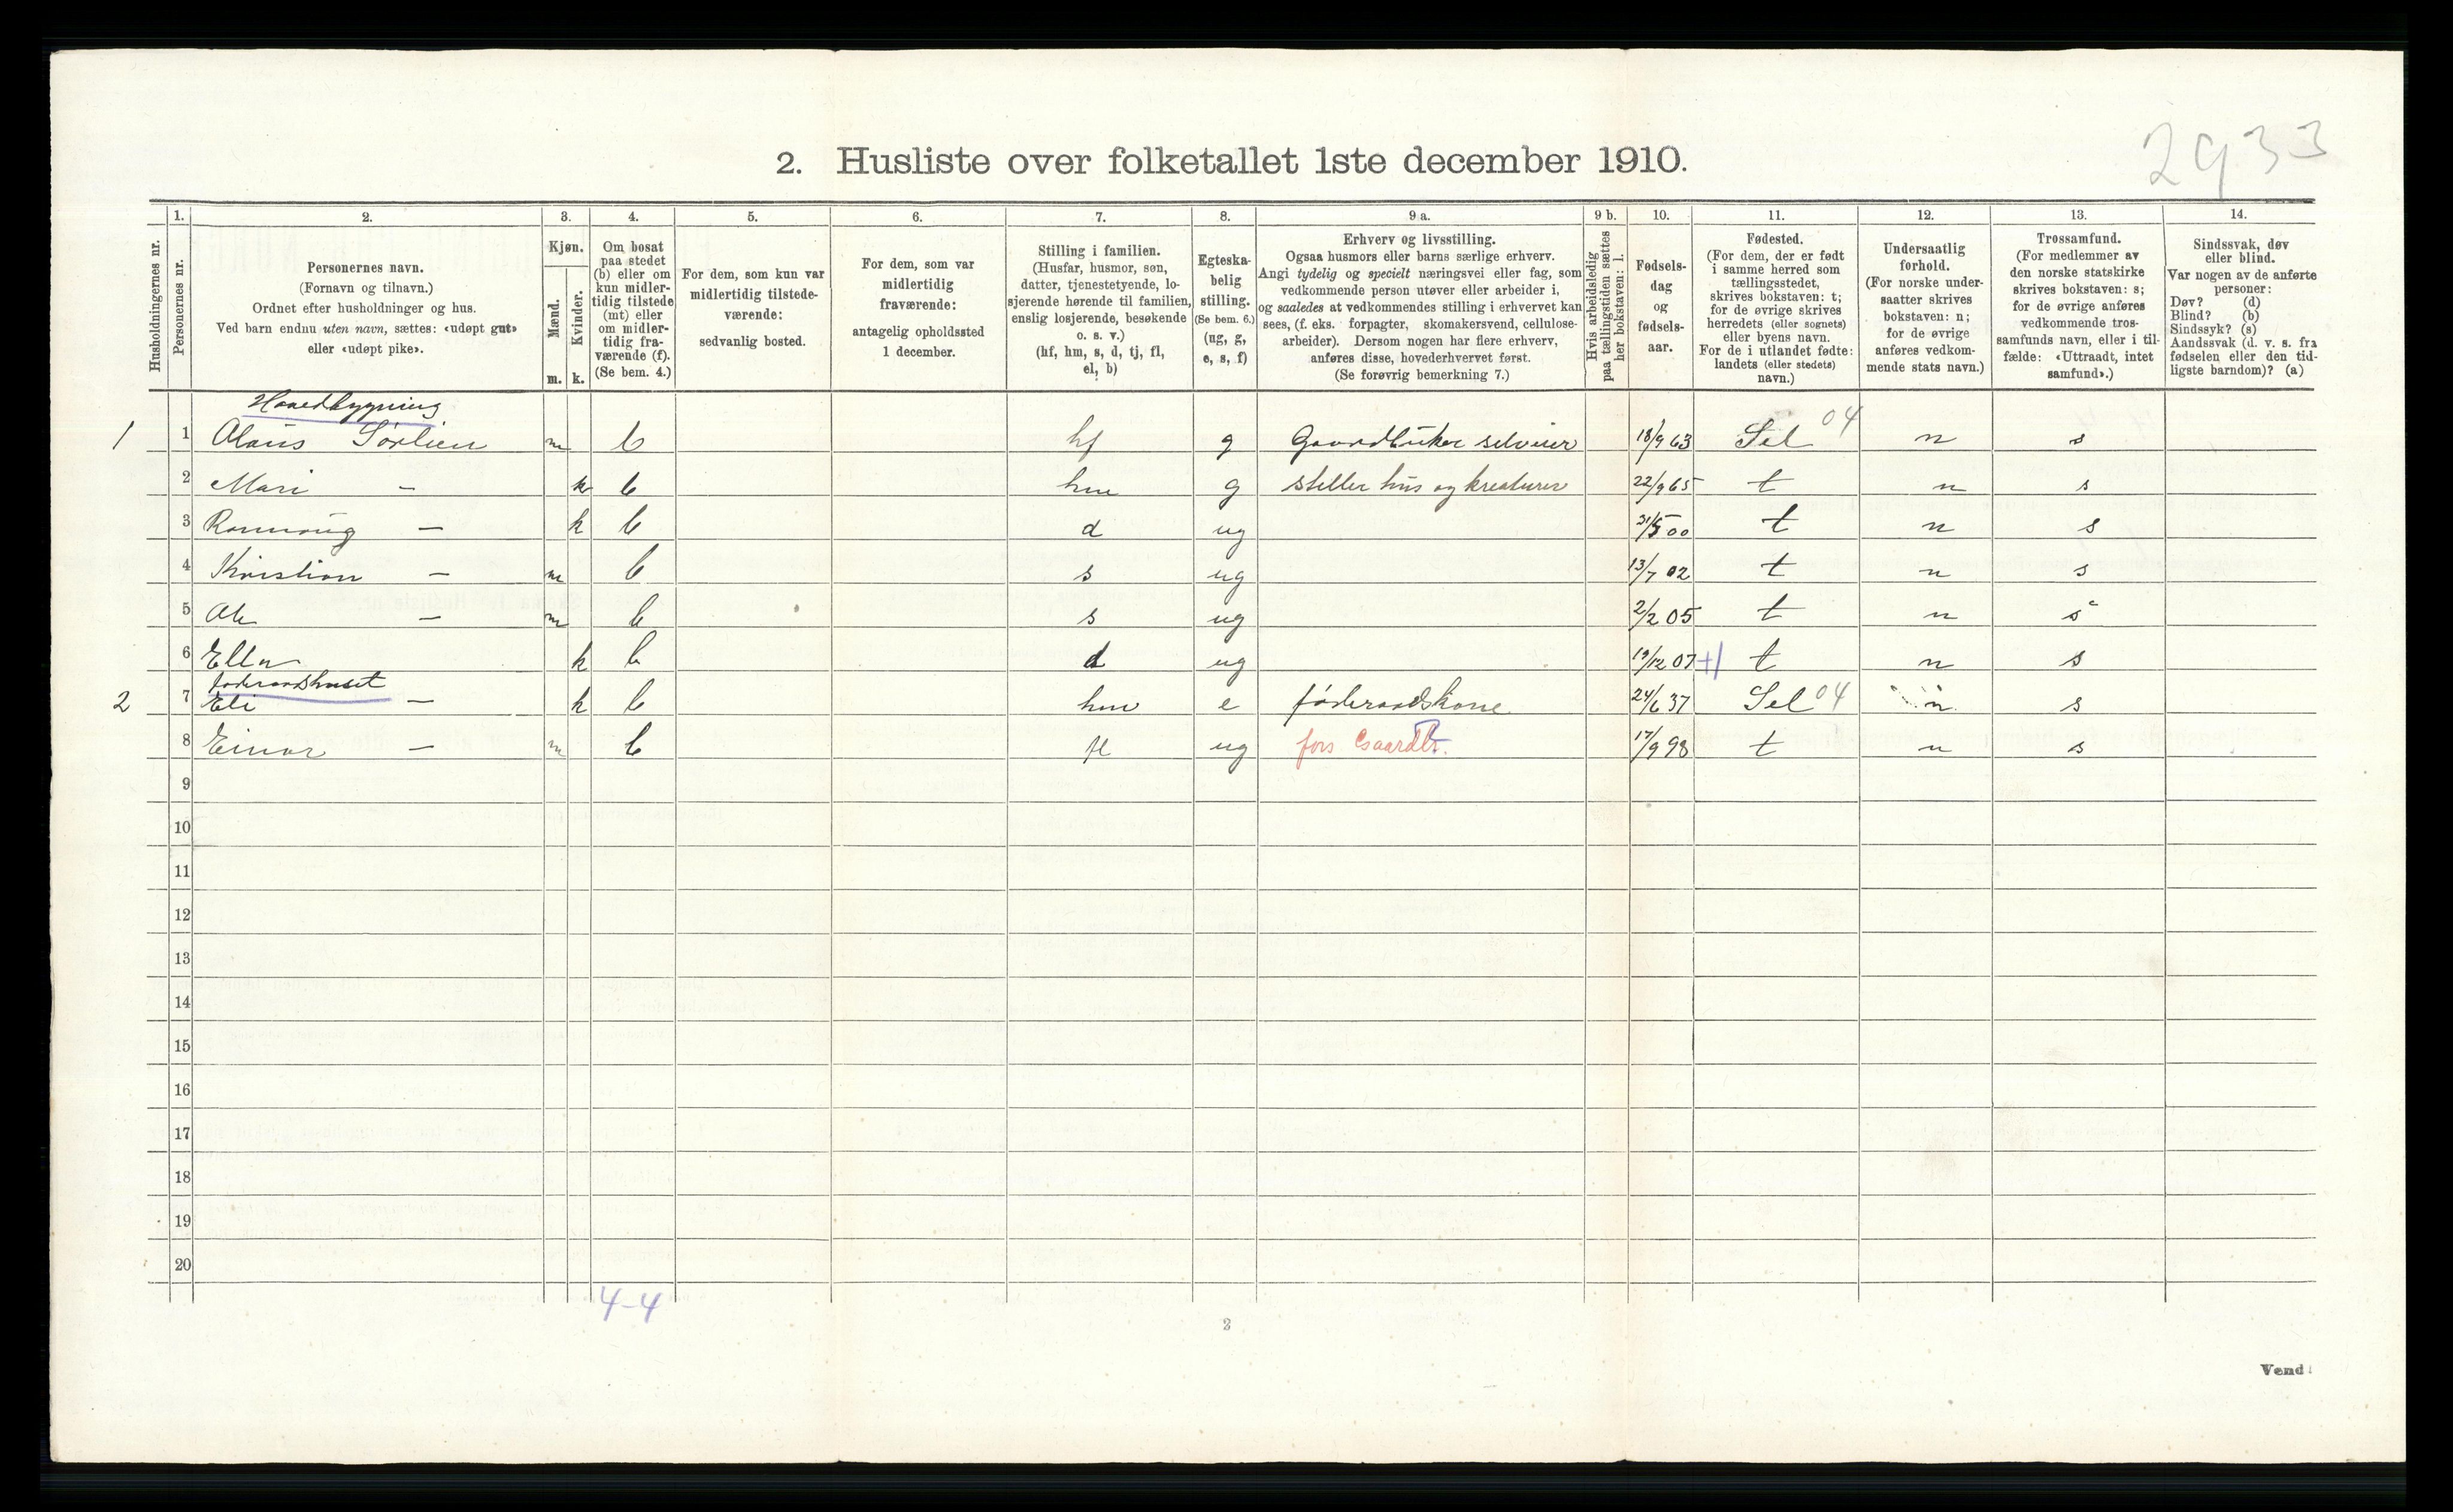 2933
2. Husliste over folketallet 1ste december 1910.
Husholdningernes nr.
1.
Personernes nr.
2.
Personernes navn.
(Fornavn og tilnavn.)
Ordnet efter husholdninger og hus.
Ved barn endnu uten navn, sættes: «udøpt gut»
eller «udøpt pike».
3.
Kjøn.
Mænd.
Kvinder.
m. k.
4.
Om bosat
paa stedet
(b) eller om
kun midler-
tidig tilstede
(mt) eller
om midler-
tidig fra-
værende (f).
(Se bem. 4.)
5.
For dem, som kun var
midlertidig tilstede-
værende:
sedvanlig bosted.
6.
For dem, som var
midlertidig
fraværende:
antagelig opholdssted
1 december.
7.
Stilling i familien.
(Husfar, husmor, søn,
datter, tjenestetyende, lo-
sjerende hørende til familien,
enslig losjerende, besøkende
o. s. v.)
(hf, hm, s, d, tj, fl,
el, b)
8.
Egteska-
belig
stilling.
(Se bem. 6.)
(ug, g,
e, s, f)
9 a.
Erhverv og livsstilling.
Ogsaa husmors eller barns særlige erhverv.
Angi tydelig og specielt næringsvei eller fag, som
vedkommende person utøver eller arbeider i,
og saaledes at vedkommendes stilling i erhvervet kan
sees, (f. eks. forpagter, skomakersvend, cellulose-
arbeider). Dersom nogen har flere erhverv,
anføres disse, hovederhvervet først.
(Se forøvrig bemerkning 7.)
9 b.
Hvis arbeidsledig
paa tællingstiden sættes
her bokstaven: l.
10.
Fødsels-
dag
og
fødsels-
aar.
11.
Fødested.
(For dem, der er født
i samme herred som
tællingsstedet,
skrives bokstaven: t;
for de øvrige skrives
herredets (eller sognets)
eller byens navn.
For de i utlandet fødte:
landets (eller stedets)
navn.)
12.
Undersaatlig
forhold.
(For norske under-
saatter skrives
bokstaven: n;
for de øvrige
anføres vedkom-
mende stats navn.)
13.
Trossamfund.
(For medlemmer av
den norske statskirke
skrives bokstaven: s;
for de øvrige anføres
vedkommende tros-
samfunds navn, eller i til-
fælde: «Uttraadt, intet
samfund».)
14.
Sindssvak, døv
eller blind.
Var nogen av de anførte
personer:
Døv? (d)
Blind? (b)
Sindssyk? (s)
Aandssvak (d. v. s. fra
fødselen eller den tid-
ligste barndom)? (a)
Hovedbygning
1 1 Olaus Sørlien m b hf g Gaardbruker selveier 18/9 63 Sel 04 n s
2 Mari — k b hm g steller hus og kreaturer 22/9 65 t n s
3 Ronnaug — k b d ug 31/5 00 t n s
4 Kristian — m b s ug 13/7 02 t n s
5 Ole — m b s ug 2/2 05 t n s
6 Ella k b d ug 19/12 07 +1 t n s
føderaadshuset
2 7 Eli — k b hm e føderaadskone 24/6 37 Sel 04 n s
8 Einar — m b fl ug fors Gaardbr. 17/9 98 t n s
9
10
11
12
13
14
15
16
17
18
19
20
4-4
2
Vend!